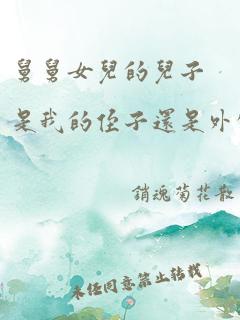 舅舅女兒的兒子
是我的侄子還是外
銷魂菊花散
未经同意禁止转载